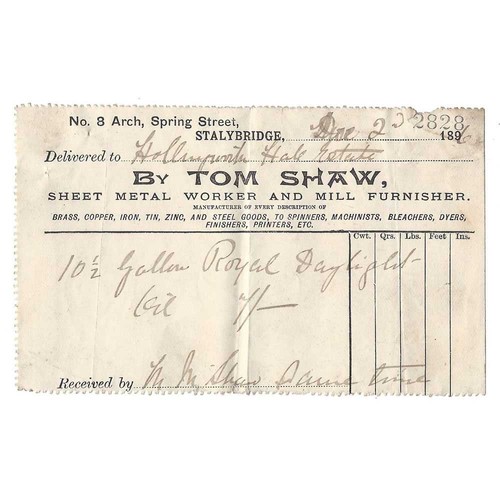 No. 8 Arch, Spring Street,
STALYBRIDGE, Dec 2 189
2828
Delivered to Hollingworth Hall Estate
BY TOM SHAW,
SHEET METAL WORKER AND MILL FURNISHER.
MANUFACTURER OF EVERY DESCRIPTION OF
BRASS, COPPER, IRON, TIN, ZINC, AND STEEL GOODS, TO SPINNERS, MACHINISTS, BLEACHERS, DYERS,
FINISHERS, PRINTERS, ETC.
Cwt. Qrs. Lbs. Feet Ins.
10 1/2 Gallon Royal Daylight
Oil 7/-
Received by Shaw Same time